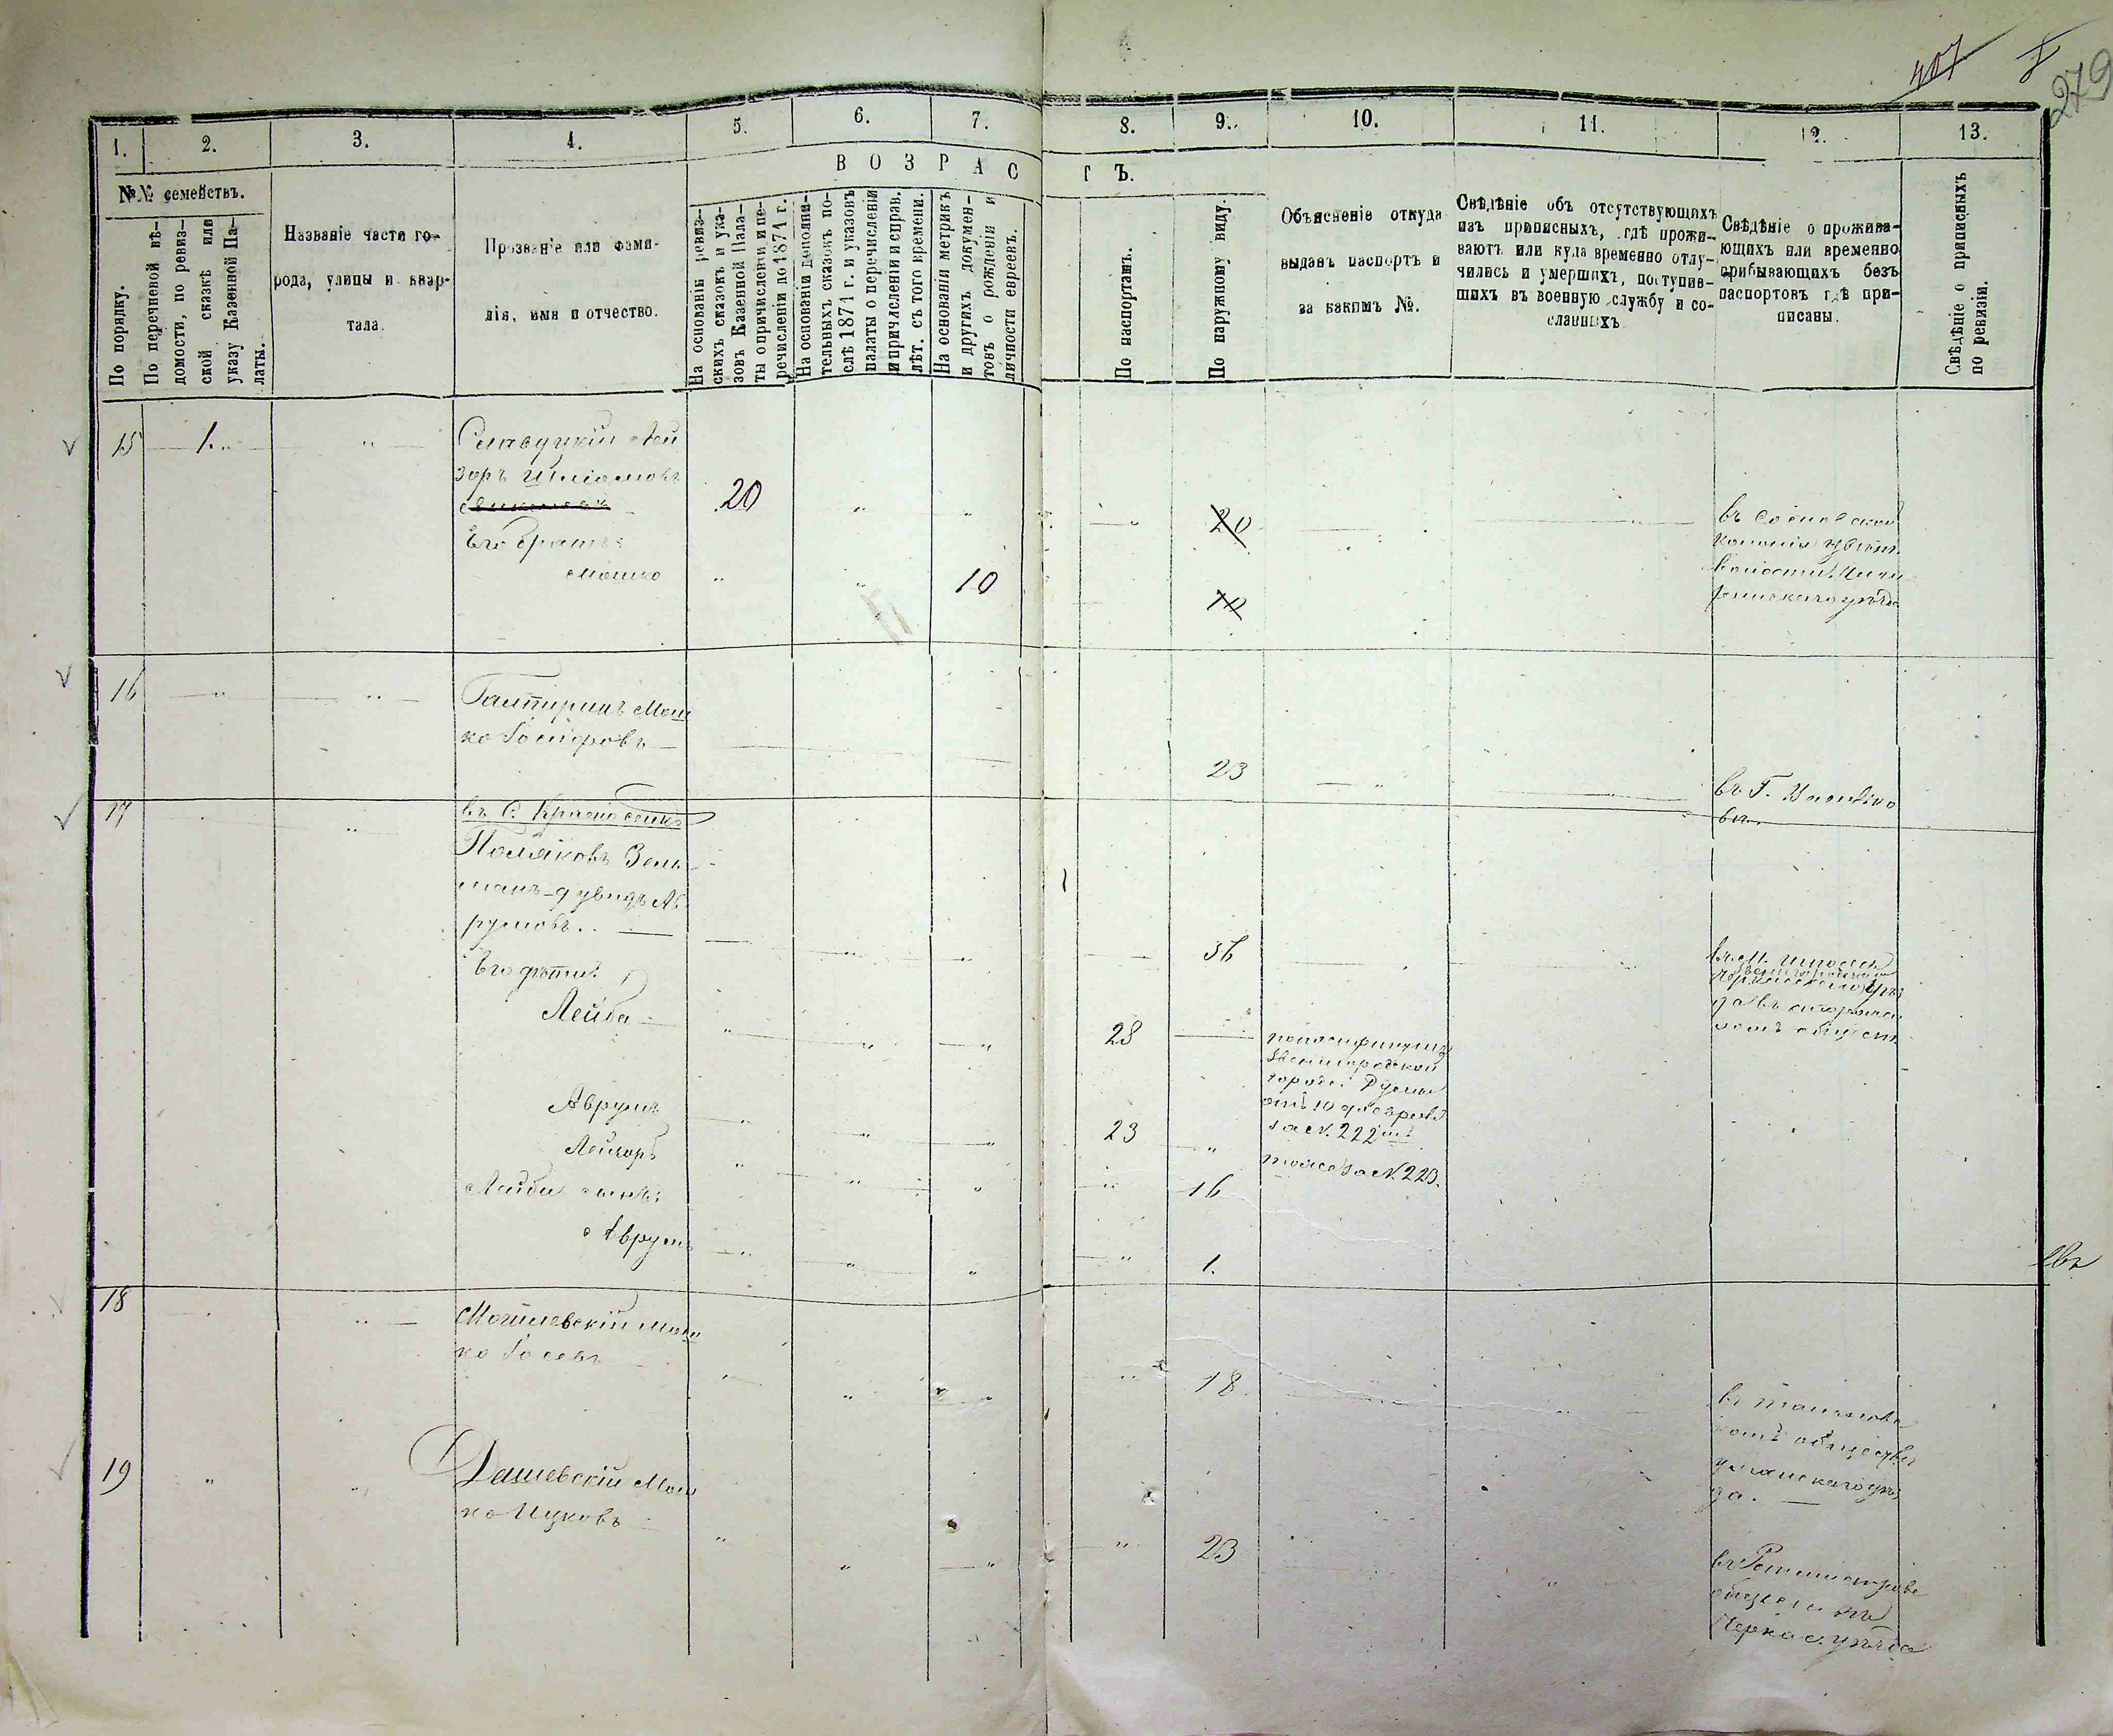 407
279
1.
2.
3.
4.
5.
6.
7.
8.
9.
10.
11.
12.
13.
№№ семействъ.
По порядку.
По перечневой вѣ-
домости, по ревиз-
ской сказкѣ или
указу Казенной Па-
латы.
Названіе части го-
рода, улицы и квар-
тала.
Прозваніе или фами-
лія, имя и отчество.
ВОЗРАС
ТЪ.
На основаніи ревиз-
скихъ сказокъ и ука-
зовъ Казенной Пала-
ты о причисленіи и пе-
речисленіи до 1871 г.
На основаніи дополни-
тельныхъ сказокъ по-
слѣ 1871 г. и указовъ
палаты о перечисленіи
и причисленіи и справ.
лѣт. съ того времени.
На основаніи метрикъ
и другихъ докумен-
товъ о рожденіи и
личности евреевъ.
По паспортамъ.
По наружному виду.
Объясненіе откуда
выданъ паспортъ и
за какимъ №.
Свѣдѣніе объ отсутствующихъ
изъ приписныхъ, гдѣ прожи-
ваютъ или куда временно отлу-
чились и умершихъ, поступив-
шихъ въ военную службу и со-
сланныхъ
Свѣдѣніе о прожива-
ющихъ или временно
прибывающихъ безъ
паспортовъ гдѣ при-
писаны.
Свѣдѣніе о приписныхъ
по ревизіи.
15 1.
Славуцкій Лей
зоръ Шліомовъ
20 20
Его братъ:
Мошко 10 10
въ
колоніи
волости. Чиги
ринскаго уѣзда
16
Гальперинъ Мош
ко Іосіфовъ
23
въ Г. Василько
вѣ.
17
въ С. Красносельѣ
Поляковъ Зель
манъ-Дувидъ Аб
румовъ.
36
въ м. Шполѣ
Его дѣти:
Лейба 28
Звенигородской
город. Думы
отъ 10 февраля
за №. 222
Аврумъ 23
тоже за №. 223.
Лейзоръ 16
Лейби сынъ:
Аврумъ 1.
18
Могилевскій Мош
ко Іосевъ
18
въ
обществѣ
уманскаго уѣз
да.
19
Дашевскій Мош
ко Ицковъ
23
въ Ротмистров
обществѣ
Черкас. уѣзда